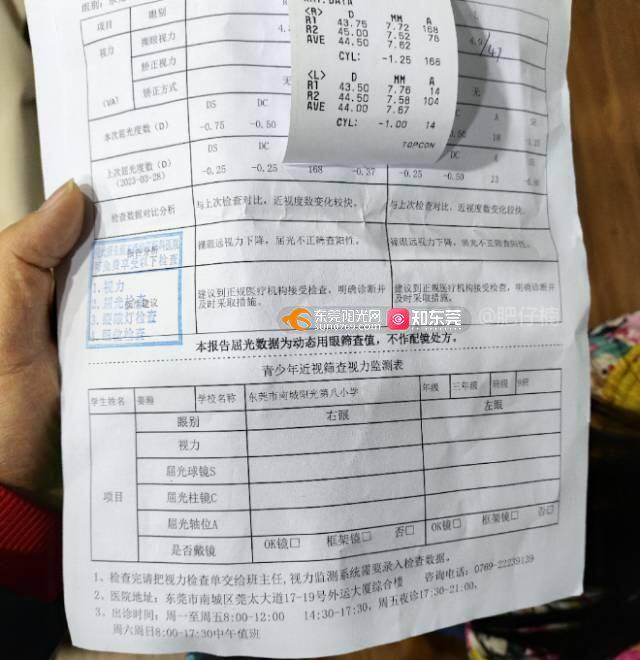 KRT.DATA
<R> D MM A
R1 43.75 7.72 168
R2 45.00 7.52 78
AVE 44.50 7.62
CYL: -1.25 168
<L> D MM A
R1 43.50 7.76 14
R2 44.50 7.58 104
AVE 44.00 7.67
CYL: -1.00 14
TOPCON
项目 眼别
视力 裸眼视力 4.9/4.7
矫正视力
(VA) 矫正方式 无 无
DS DC
本次屈光度数(D) -0.75 -0.50
DS DC
上次屈光度数(D)
(2023-03-28) -0.25 -0.25 168 -0.37 -0.25 -0.50 23
检查数据对比分析 与上次检查对比,近视度数变化较快。 与上次检查对比,近视度数变化较快。
裸眼远视力下降,屈光不正筛查阳性。 裸眼远视力下降,屈光不正筛查阳性。
请免费享受以下检查
1.视力
2.屈光检查
3.裂隙灯检查
建议到正规医疗机构接受检查,明确诊断并及时采取措施。 建议到正规医疗机构接受检查,明确诊断并及时采取措施。
东莞阳光网 知东莞 @肥仔楠
本报告屈光数据为动态用眼筛查值,不作配镜处方。
青少年近视筛查视力监测表
学生姓名 学校名称 东莞市南城阳光第八小学 年级 三年级 班级 9班
眼别 右眼 左眼
视力
屈光球镜S
项目 屈光柱镜C
屈光轴位A
是否戴镜 OK镜□ 框架镜□ 否□ OK镜□ 框架镜□ 否□
1、检查完请把视力检查单交给班主任,视力监测系统需要录入检查数据。
2、医院地址:东莞市南城区莞太大道17-19号外运大厦综合楼 咨询电话:0769-22239139
3、出诊时间:周一至周五8:00-12:00 14:30-17:30,周五夜诊17:30-21:00,
周六周日8:00-17:30中午值班